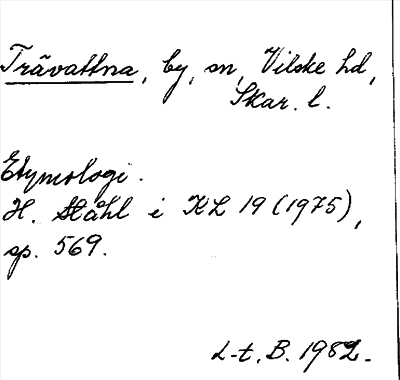 Trävattna, by, sn, Vilske hd,
Skar. l.
Etymologi.
H. Ståhl i KL 19 (1975),
sp. 569.
L-t, B. 1982.